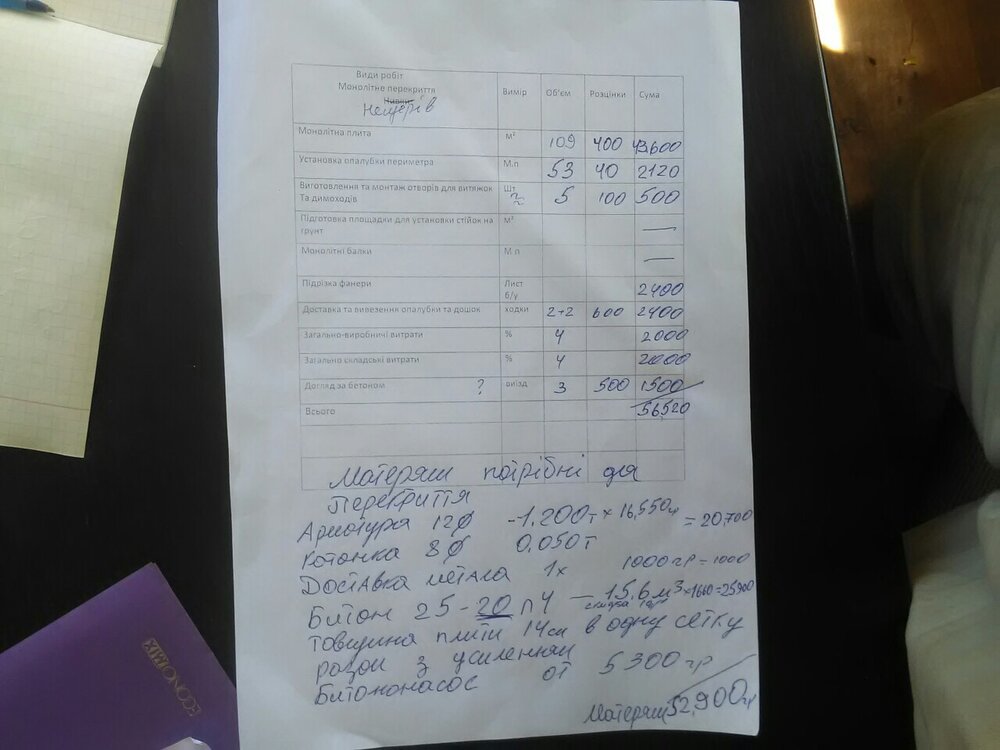 Види робіт
Монолітне перекриття
Нещерів
Вимір Об'єм Розцінки Сума
Монолітна плита м² 109 400 43600
Установка опалубки периметра М.п 53 40 2120
Виготовлення та монтаж отворів для витяжок Та димоходів Шт. 5 100 500
Підготовка площадки для установки стійок на грунт м² —
Монолітні балки М.п —
Підрізка фанери Лист б/у 2400
Доставка та вивезення опалубки та дошок ходки 2+2 600 2400
Загально-виробничі витрати % 4 2000
Загально складські витрати % 4 2000
Догляд за бетоном ? виїзд 3 500 1500
Всього 56520
Матеряли потрібні для
перекриття
Арматура 12ф -1,200т × 16,550гр = 20,700
Котонка 8ф 0,050т
Доставка метала 1х 1000гр = 1000
Битон 25-20 П4 — 15,6м³×1660=25900
товщина плити 14см в одну сетку
разом з усиленням
Битононасос от 5300гр
Матеряли 52,900гр
ECONOMIX